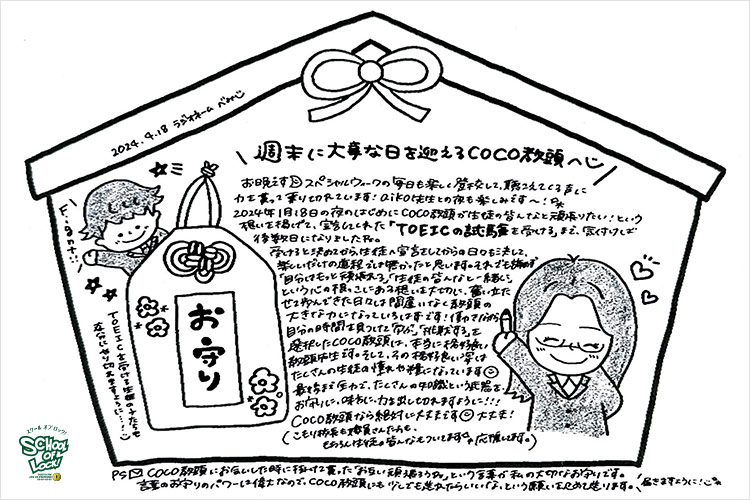 2024.4.18 ラジオネーム べみぃ
週末に大事な日を迎えるCOCO教頭へ
お晩です スペシャルウィークの毎日も楽しく登校して、聴こえてくる声に
力を貰って乗り切れています! aiko先生との夜も楽しみです〜!
2024年1月18日の夜のはじめにCOCO教頭が生徒の皆んなと頑張りたい!という
想いを掲げて、宣言してくれた「TOEICの試験を受ける」まで、気付けば
後数日になりました
受けると決めてから、生徒へ宣言してからの日々も決して、
楽しいだけの道程では無かったと思います。それでも諦めず
「自分はもっと頑張れる」「生徒の皆んなと一緒に」
という心の根っこにある想いを大切にし、奮い立た
せ歩んできた日々は間違いなく教頭の
大きな力になっているはずです! 働きながら
自分の時間を見つけて学び、「挑戦する」を
選択したCOCO教頭は、本当に格好良い
教頭先生です。そして、その格好良い姿は
たくさんの生徒の憧れや糧になっています
最後まで云わで、たくさんの知識という武器を
お守りに、味方に、力を出し切れますように!!!
COCO教頭なら絶対に大丈夫です 大丈夫!
(こもり校長も職員さん方も、
もちろん生徒の皆んなもついてますよ。応援してます。)
Fight!!
お守り
TOEICを受ける生徒の子たちも
存分にやり切れますように…!
スクール オブ ロック!
SCHOOL OF LOCK!
PS COCO教頭にお会いした時に掛けて貰った「お互い頑張ろうね」という言葉が私の大切なお守りです。
言葉のお守りのパワーは偉大なので、COCO教頭にも少しでも送れたらいいな、という願いを込めて送ります。
届きますように!